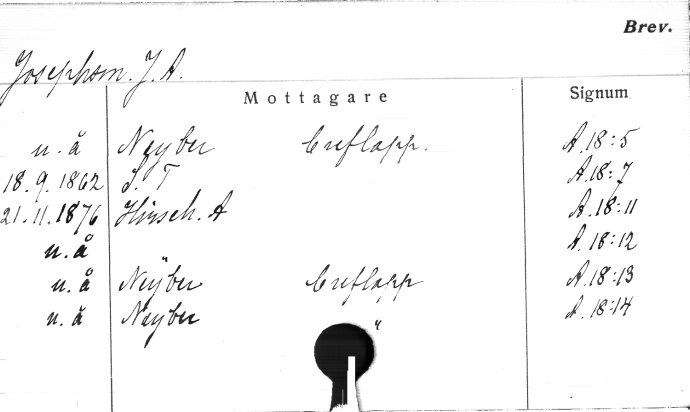 Brev.
Josephson. J. A.
Mottagare Signum
u. å Neyber Brefkapp. A. 18:5
18. 9. 1862 S. T A. 18:7
21. 11. 1876 Hirsch. A A. 18:11
u. å " A. 18:12
u. å Neyber Brefkapp A. 18:13
u. å Neyber " A. 18:14